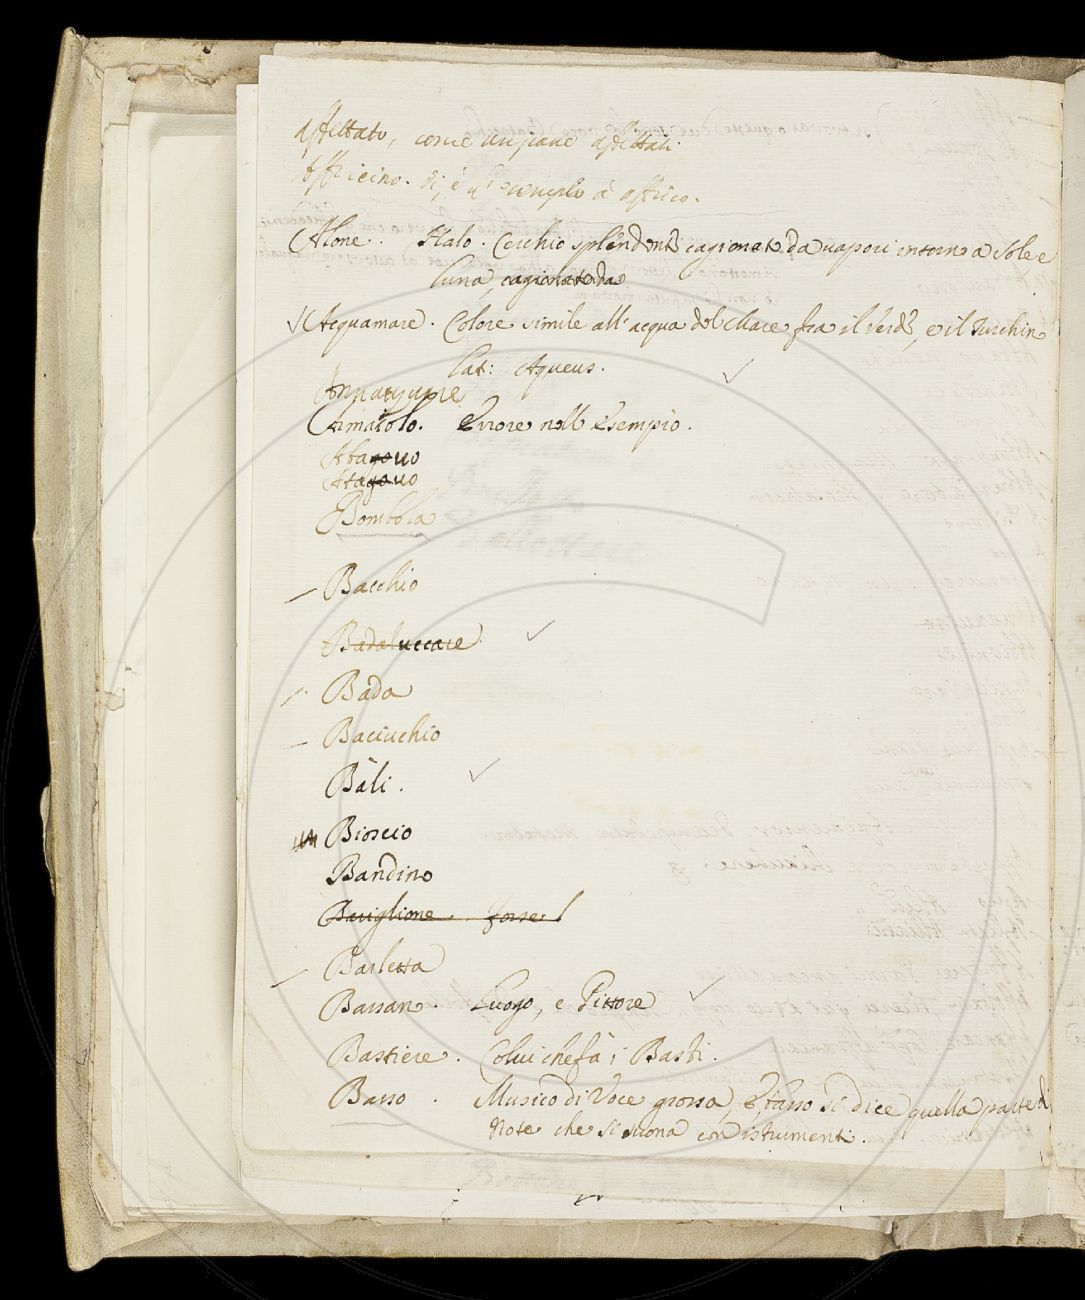 affettato, come un pane affettati
Affricino. Vi, è l'esempio à affrico.
Alone. Halo. Cerchio splendente cagionato da vapori intorno a Sole, e
luna, cagionato da
Acquamare. Colore simile all'acqua del Mare fra il Verde, e il Turchino
Lat: Aqueus.
Armatolo. Errore nell'Esempio.
Bombola
Bacchio
Badaluccare
Bada
Baciucchio
Bàli.
Bioscio
Bandino
Baviglione. forse
Barletta
Bassano. Luogo, e Pittore
Bastiere. Colui che fà i Basti.
Basso. Musico di Voce grossa, e basso si dice quella parte di
Note che si suona con istrumenti.